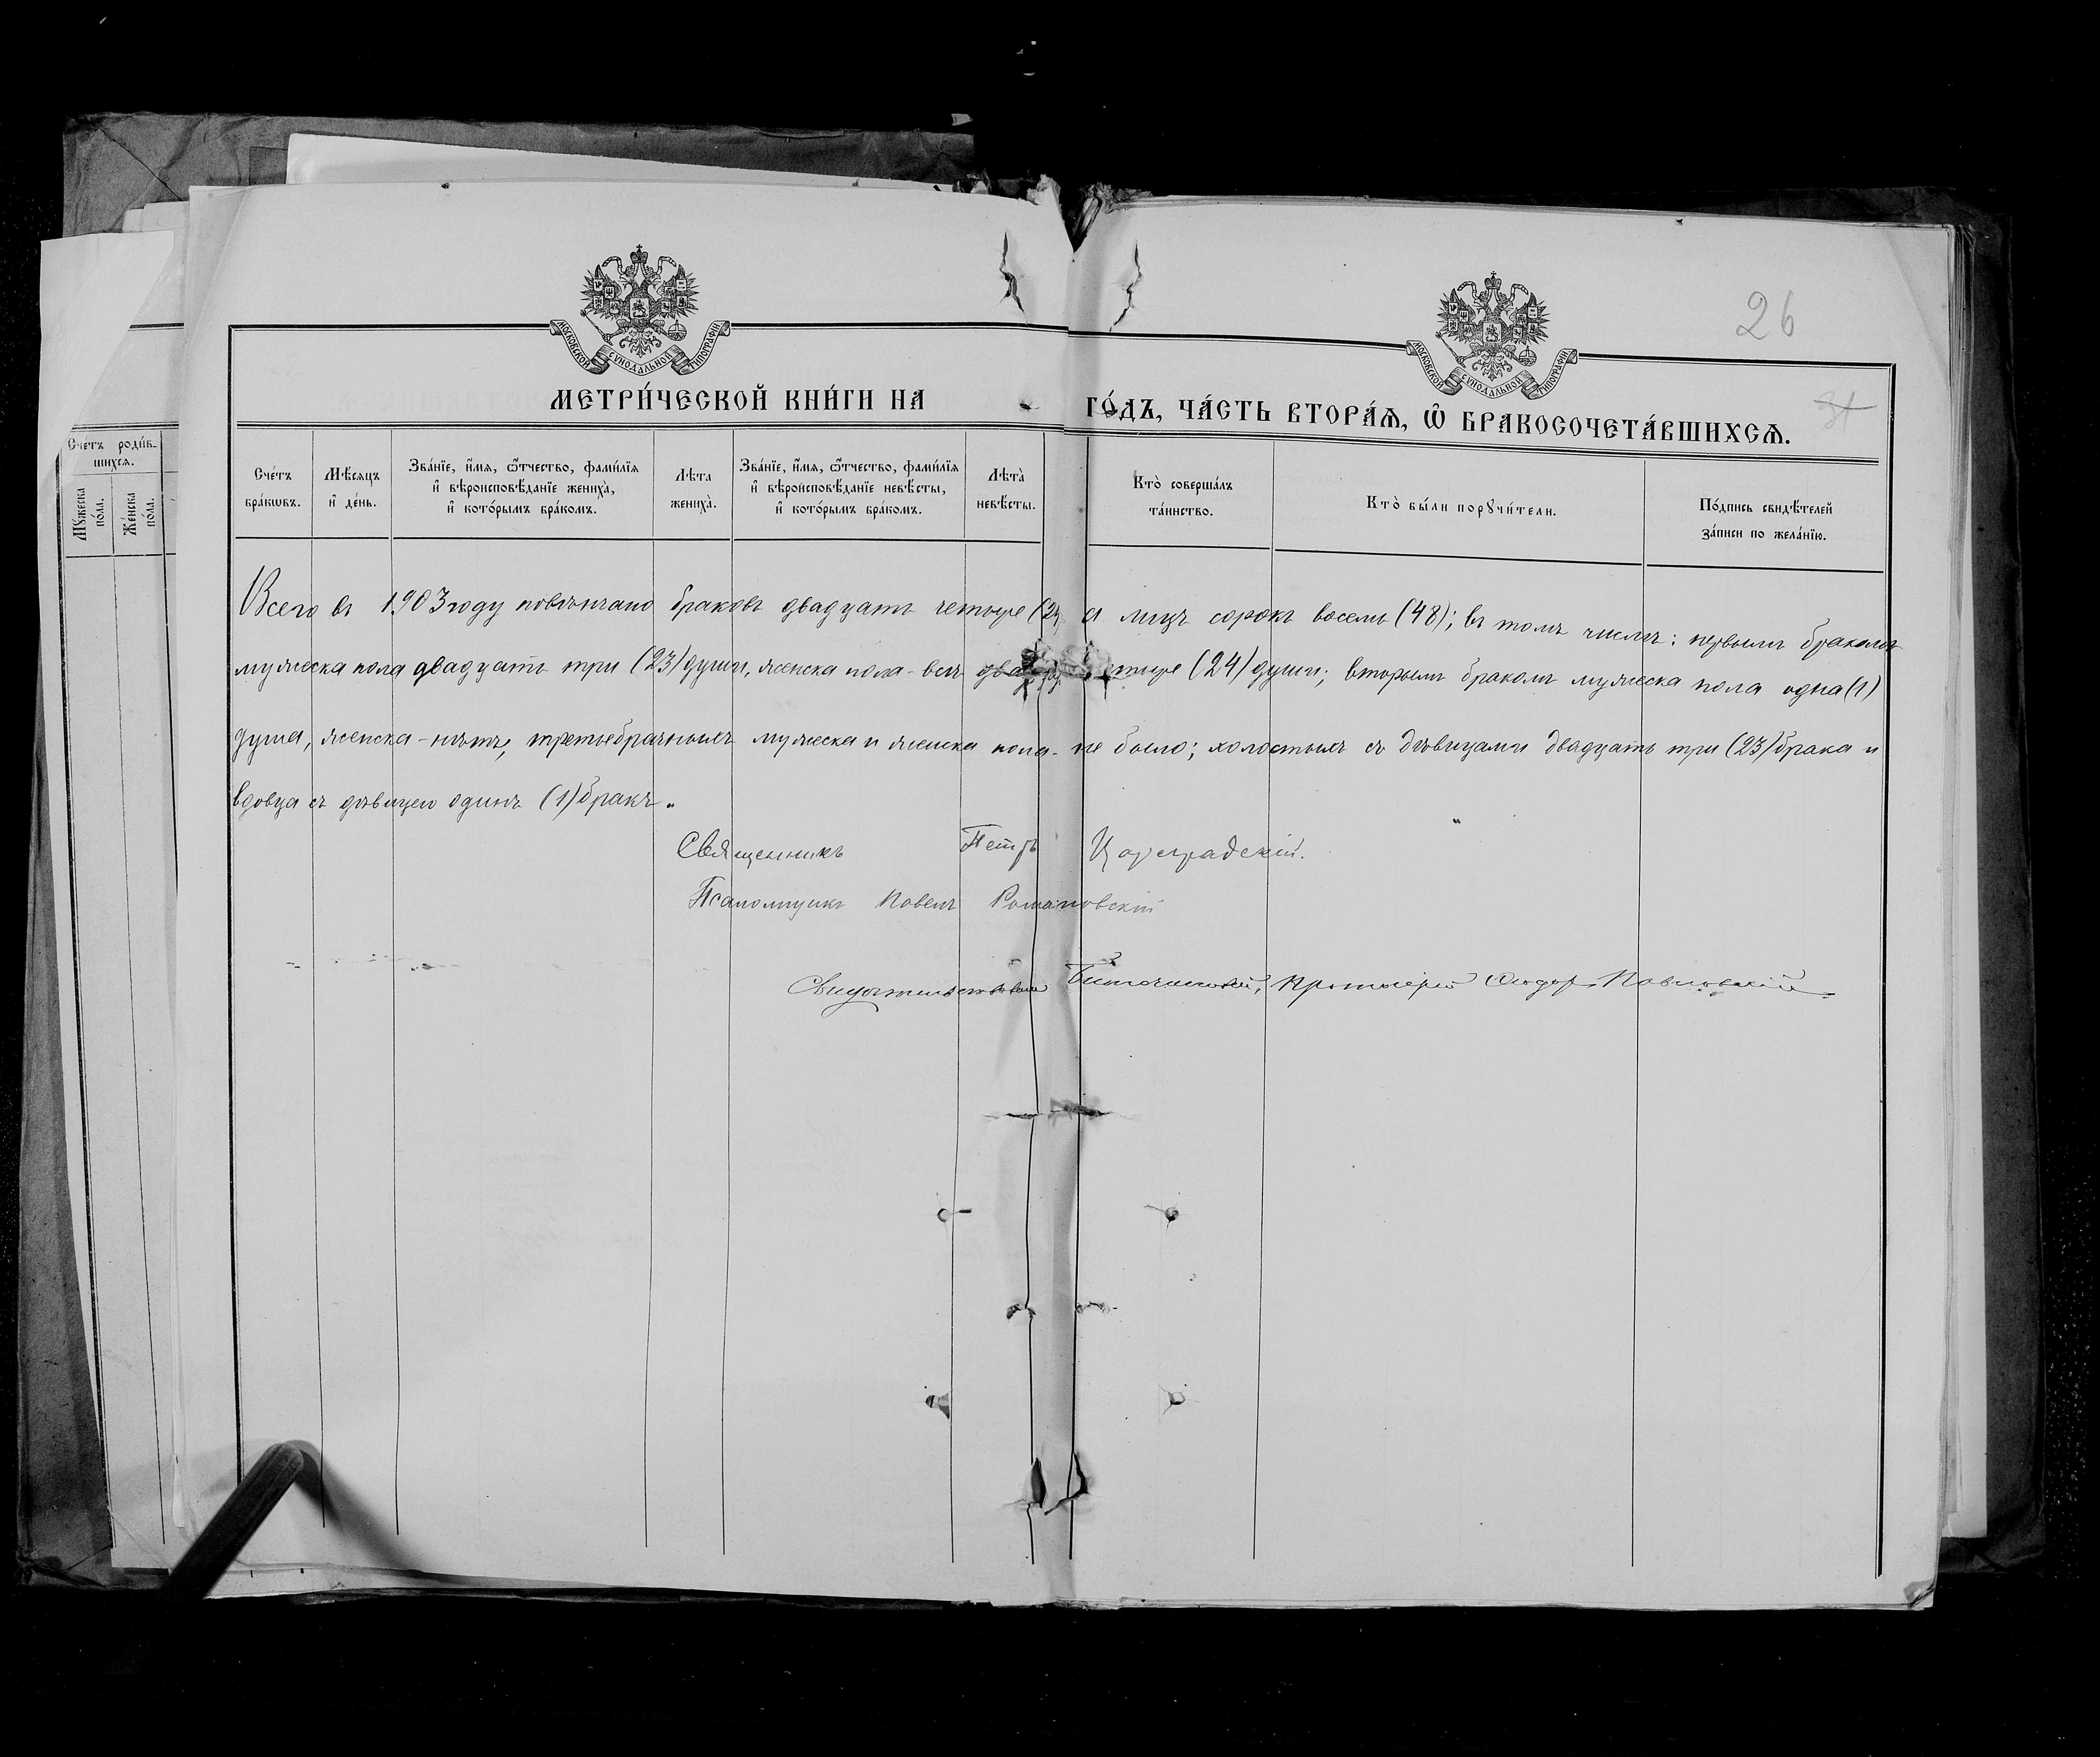 26
МОСКОВСКОЙ СѴНОДАЛЬНОЙ ТИПОГРАФІИ
МОСКОВСКОЙ СѴНОДАЛЬНОЙ ТИПОГРАФІИ
МЕТРИ́ЧЕСКОЙ КНИ́ГИ НА ГО́ДЪ, ЧА́СТЬ ВТОРА́Ѧ, Ѽ БРАКОСОЧЕТА́ВШИХСѦ.
Сче́тъ роди́вшихсѧ.
Мꙋ́жеска по́ла.
Же́нска по́ла.
Сче́тъ бра́кѡвъ.
Мѣ́сяцъ и҆ де́нь.
Зва́нїе, и҆́мѧ, ѻ҆́тчество, фами́лїѧ и҆ вѣроисповѣ́данїе жениха̀, и҆ кото́рымъ бра́комъ.
Лѣ́та жениха̀.
Зва́нїе, и҆́мѧ, ѻ҆́тчество, фами́лїѧ и҆ вѣроисповѣ́данїе невѣ́сты, и҆ кото́рымъ бра́комъ.
Лѣ́та невѣ́сты.
Кто̀ соверша́лъ та́инство.
Кто̀ бы́ли порꙋчи́тели.
По́дпись свидѣ́телей за́писи по жела́нїю.
Всего въ 1903 году повѣнчано браковъ двадцать четыре (24 а лицъ сорокъ восемь (48); въ томъ числѣ: первымъ бракомъ
мужеска пола двадцать три (23) души, женска пола - всѣ (24) души; вторымъ бракомъ мужеска пола одна (1)
душа, женска - нѣтъ, третьебрачныхъ мужеска и женска пола - не было; холостыхъ съ дѣвицами двадцать три (23) брака и
вдовца съ дѣвицею одинъ (1) бракъ.
Священникъ Петръ Цареградскій.
Псаломщикъ Павелъ Романовскій
Свидѣтельствовалъ Благочинный, Протоіерей Ѳеодоръ Павловскій